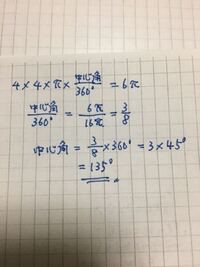 4×4×π×中心角/360° = 6π
中心角/360° = 6π/16π = 3/8
中心角 = 3/8×360° = 3×45°
= 135°